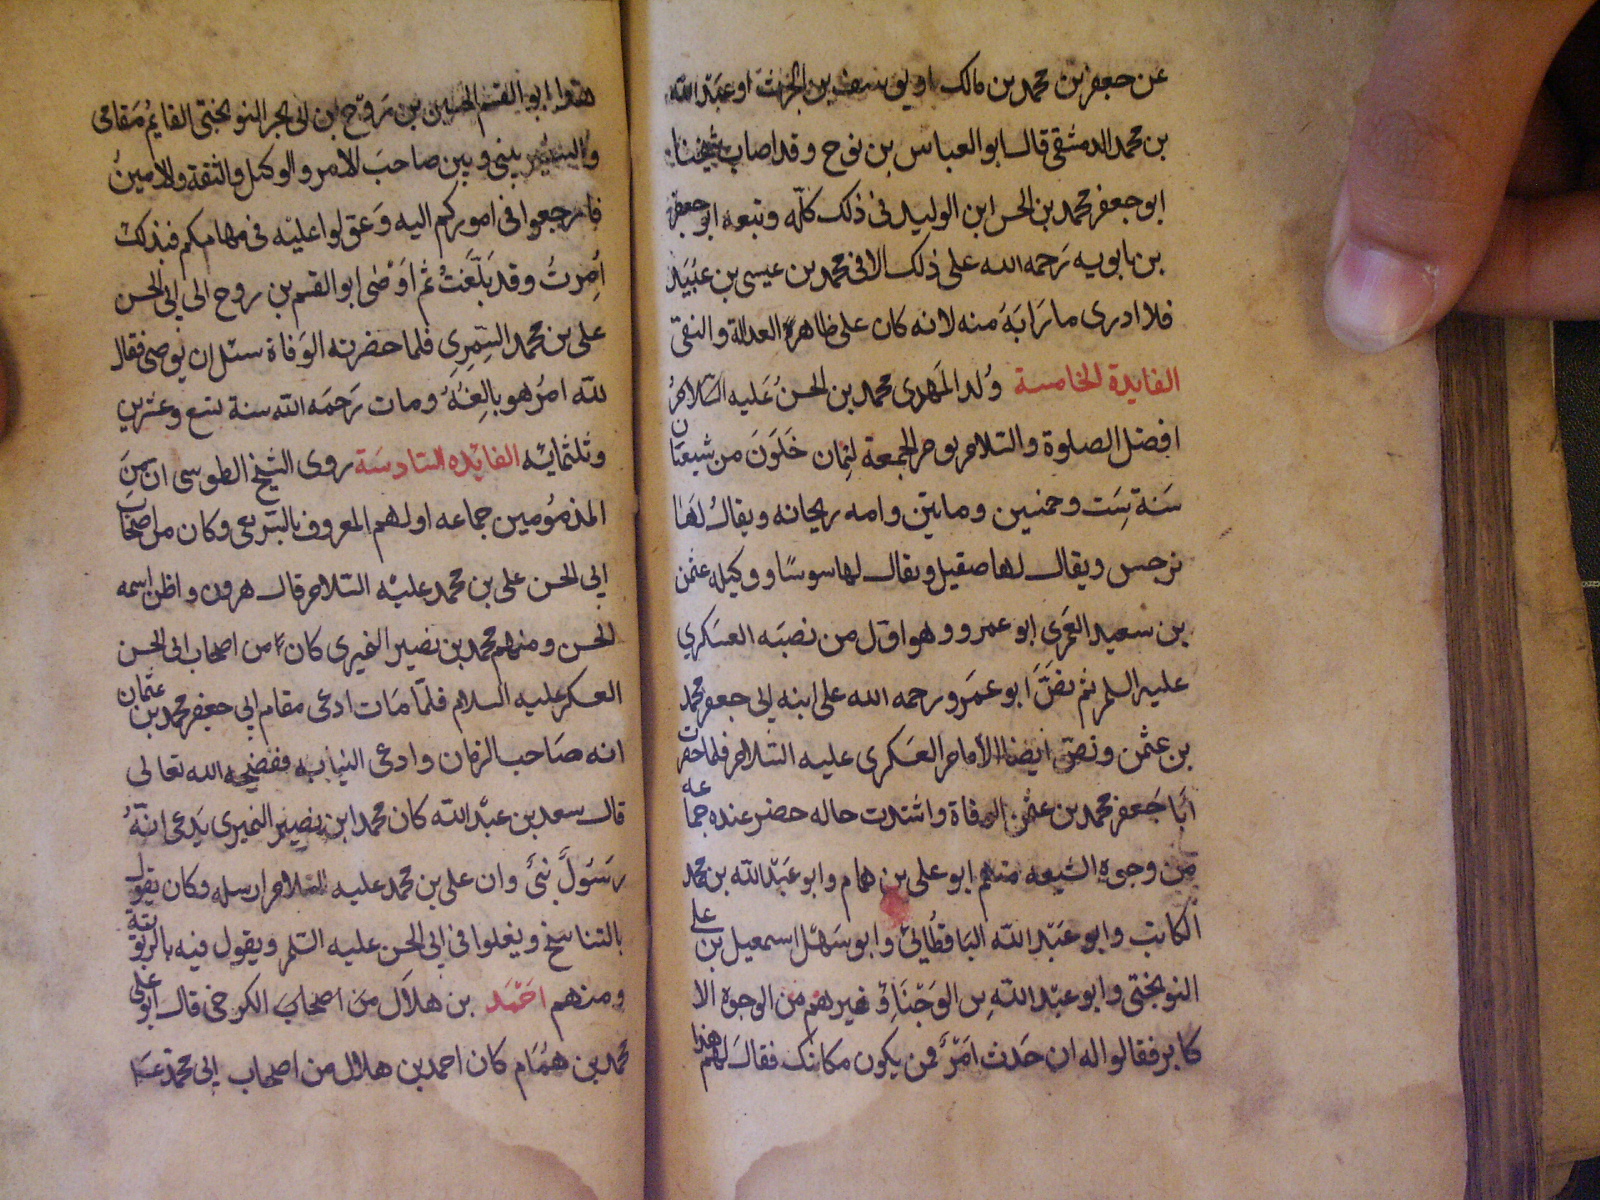 عن جعفر بن محمد بن مالك او يوسف بن الحرث او عبد الله
بن محمد الدمشقى قال ابو العباس بن نوح وقد اصاب شيخنا
ابو جعفر محمد بن الحسن ابن الوليد فى ذلك كلّه وتبعه ابو جعفر
بن بابويه رَحمه الله على ذلك الا فى محمد بن عيسى بن عبَيَد
فلا ادرى ما رَابَهُ منه لانه كان على ظاهر العدالة والثقى
الفايدة الخامسة وُلد المَهدى محمد بن الحسنُ عَليه السّلام
افضل الصلوة والسّلام يوم الجمعة لثمِان خَلَونَ من شعبان
سَنة سِت وخمسين وماتين وامه ريحانه ويقالُ لهَا
نرجس ويقال لها صقيل ويقال لها سوسًا ووكيله عثمن
بن سعيد العَمرى ابو عمرو وهو اوّل من نصبَه العسَكري
عليه السلم ثم نصَّ ابو عمَرو رحمه الله على ابنه ابى جعفر محمد
بن عثمن ونصّ ايضا الأمام العَسكرى عليه السّلام فلما حضرت
أبَا جَعفر محمد بن عثمن الوفاة واشتدت حاله حضر عنده جماعه
من وجوهِ الشيعه منهم ابو على بن همام وابو عَبْد الله بن محمد
الكاتب وابو عَبْد الله الباقطُانىّ وابو سَهْل اسمعيل بن على
النوبختى وابو عبْد الله بن الوَجْنَا وَغيرهم من الوجوه الا
كابر فقالوا له ان حَدث امْرٌ فمن يكون مكانك فقالَ لهم هذا
هذا ابو القسم الحسين بن رَوح بن ابى بحر النوبختى القايمُ مَقامى
والسفير بينى وبين صاحبَ الامر والوكيل والثقة والامينُ
فارجعوا فى اموركم اليه وَعوّلوا عليْه فى مهامكم فبذلك
اُمِرتُ وقد بَلّغتُ ثم اَوْصٰى ابو القسم بن روح الى ابى الحسن
على بن محمد السَّمِرِى فلما حضرته الوَفاة سئل ان يُوصى فقال
للّه امرُ هو بالِغُهُ ومات رَحمَه الله سنة تسع وعشرين
وثلثمايه الفايْده السّادسَة روى الشيخ الطوسى ان مِنَ
المذمُومين جماعه اولهم المعروف بالشريعى وكان من اصحاب
ابى الحسن على بن محمد عليْه السّلام قال هرون واظن اسمه
الحسن ومنهم محمد بن نصير النميرى كان من اصحاب ابى الحسن
العسكر عليه السلام فلمّا مَات ادعى مقام ابى جعفر محمد بن عثمان
انه صَاحب الزمان وادعى النيابه ففضحه الله تعالى
قال سعد بن عبْد الله كان محمد ابن نصير النميرى يَدعى انّهُ
رسَوُلٌ نبىَّ وان على بن محمد عليه السّلام ارسله وكان يقول
بالتناسخ ويغلوا فى ابى الحسن عليه السّلم ويقول فيه بالربوبيّة
ومنهم احمَد بن هلاَل مَن اصحَاب الكرخى قال ابو على
محمد بن همُام كان احمد بن هلال من اصحاب ابى محمّد عسَـ